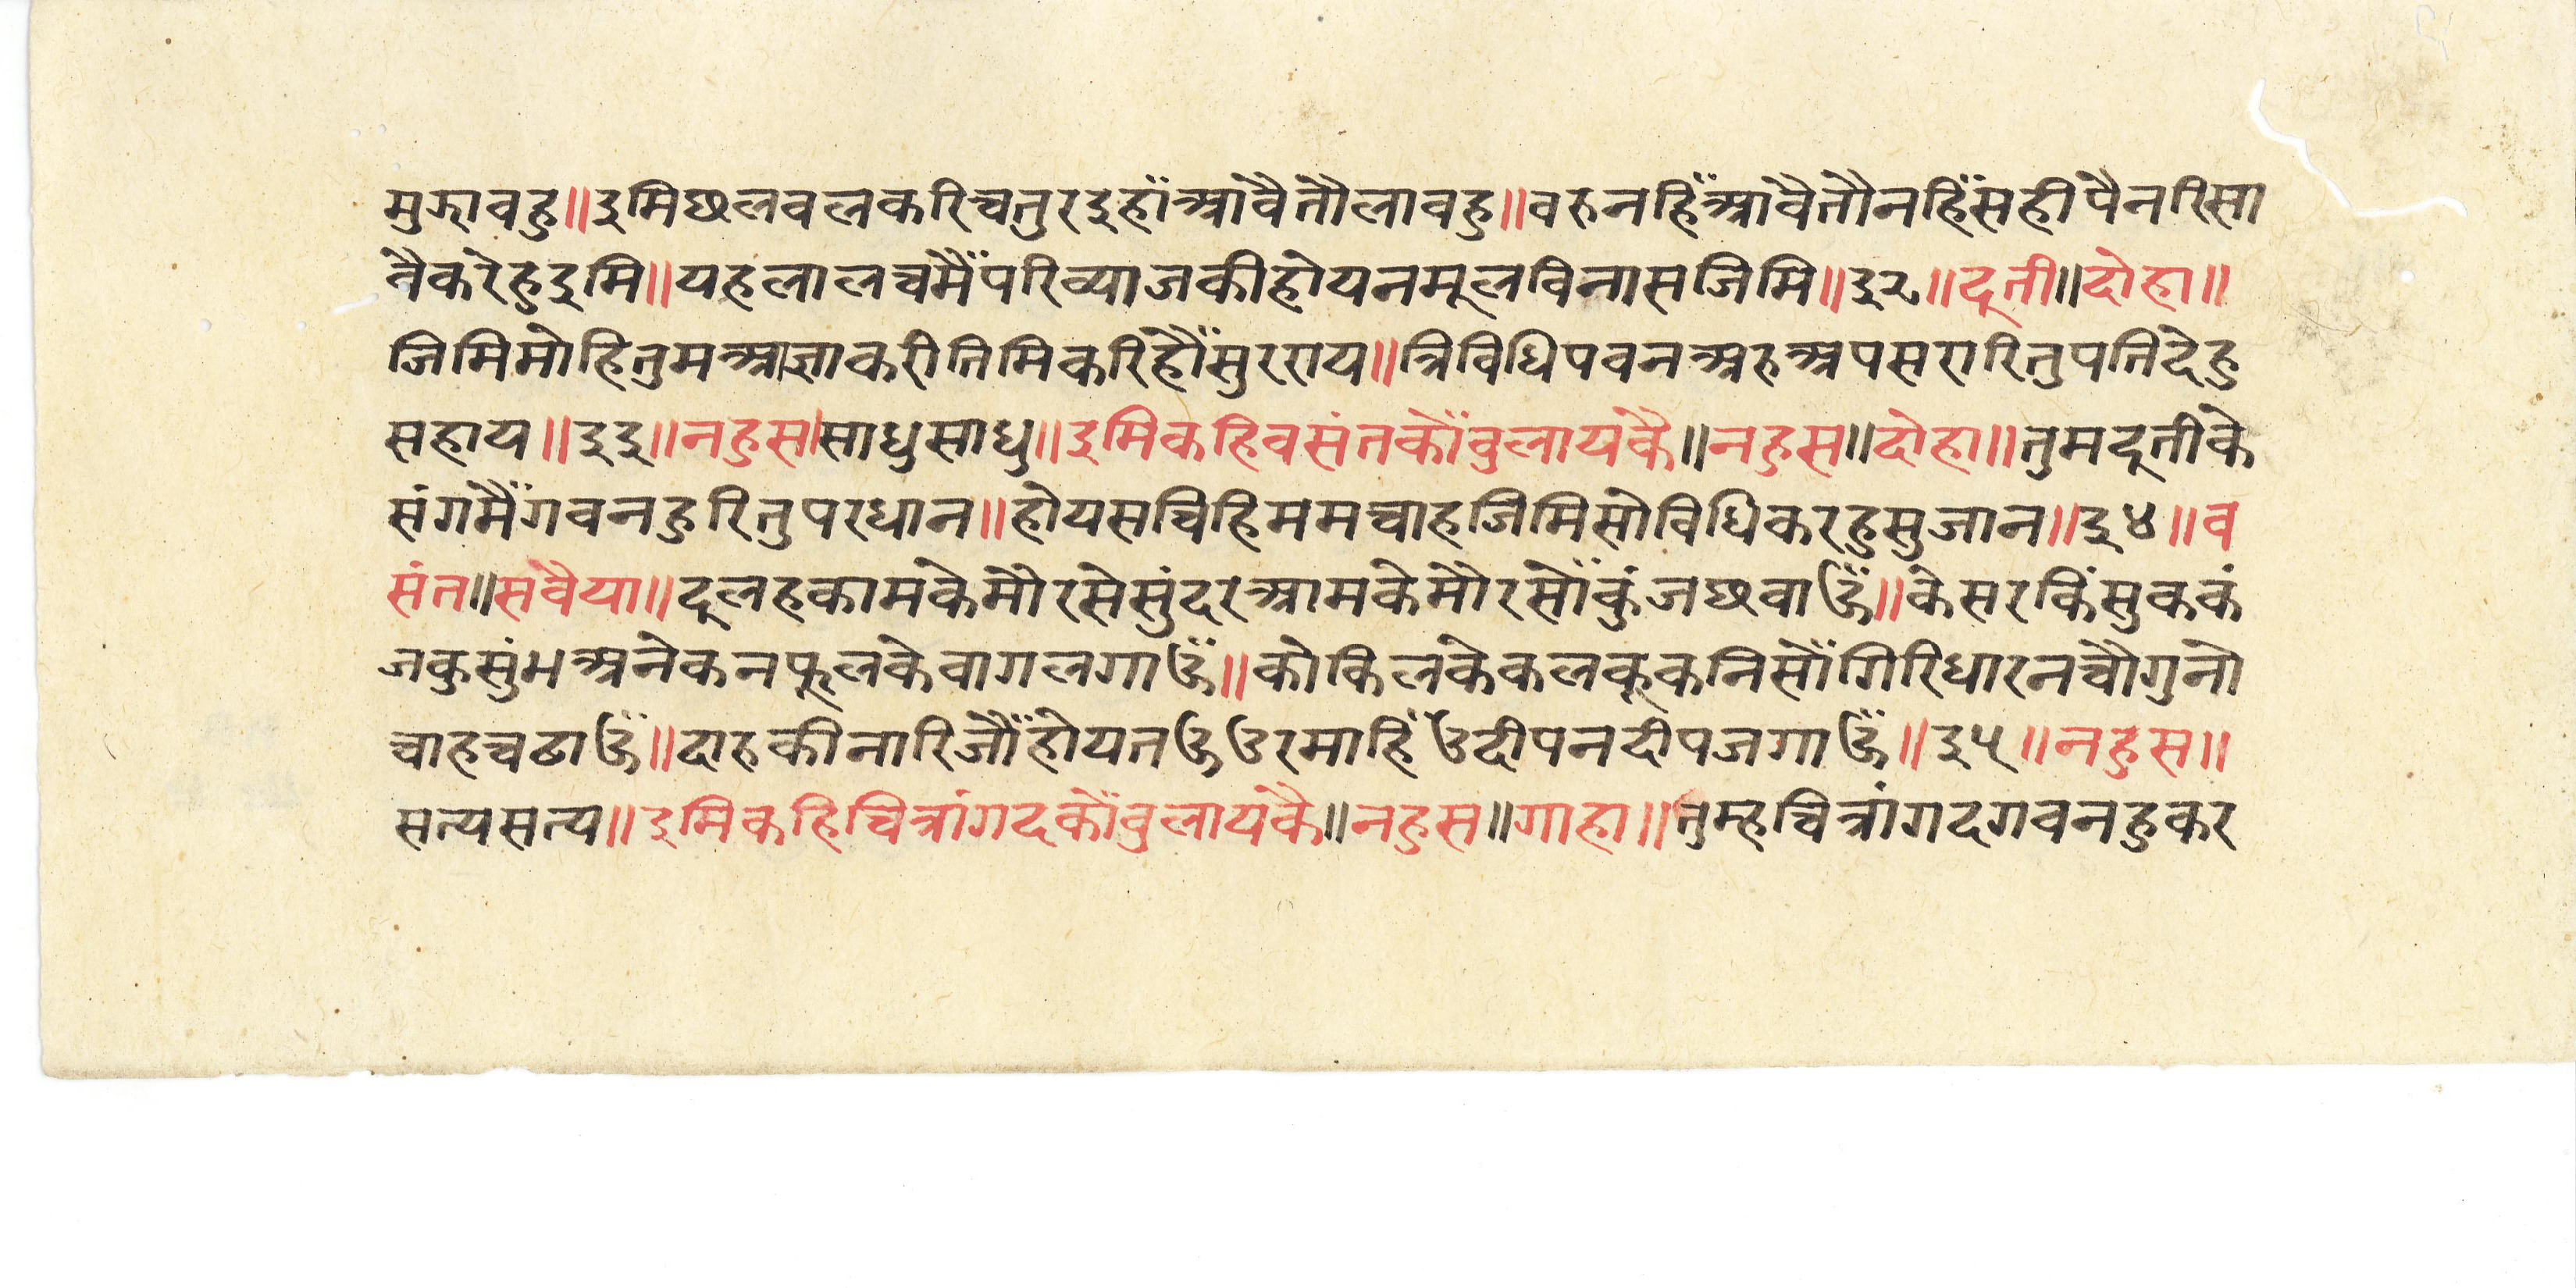 मुझावहु॥इमिछलवलकरिचतुरइहाँआवैतौलावहु॥वरुनहिँआवैतौनहिँसहीपैनरिसा
वैकरेहुइमि॥यहलालचमैँपरिव्याजकीहोयनमूलविनासजिमि॥३२॥दूती॥दोहा॥
जिमिमोहितुमआज्ञाकरीतिमिकरिहौँसुरराय॥त्रिविधिपवनअरुअपसरारितुपतिदेहु
सहाय॥३३॥नहुस।साधुसाधु॥इमिकहिवसंतकोँवुलायकै॥नहुस॥दोहा॥तुमदूतीके
संगमैँगवनहुरितुपरधान॥होयसचिहिममचाहजिमिसोविधिकरहुसुजान॥३४॥व
संत॥सवैया॥दूलहकामकेमौरसेसुंदरआमकेमौरसोँकुंजछवाऊँ॥केसरकिंसुककं
जकुसुंभअनेकनफूलकेवागलगाऊँ॥कोकिलकेकलकूकनिसोँगिरिधारनचौगुनो
चाहचढाऊँ॥दारुकीनारिजौँहोयतऊउरमाहिँउदीपनदीपजगाऊँ॥३५॥नहुस॥
सत्यसत्य॥इमिकहिचित्रांगदकोँवुलायकै॥नहुस॥गाहा॥तुम्हचित्रांगदगवनहुकर